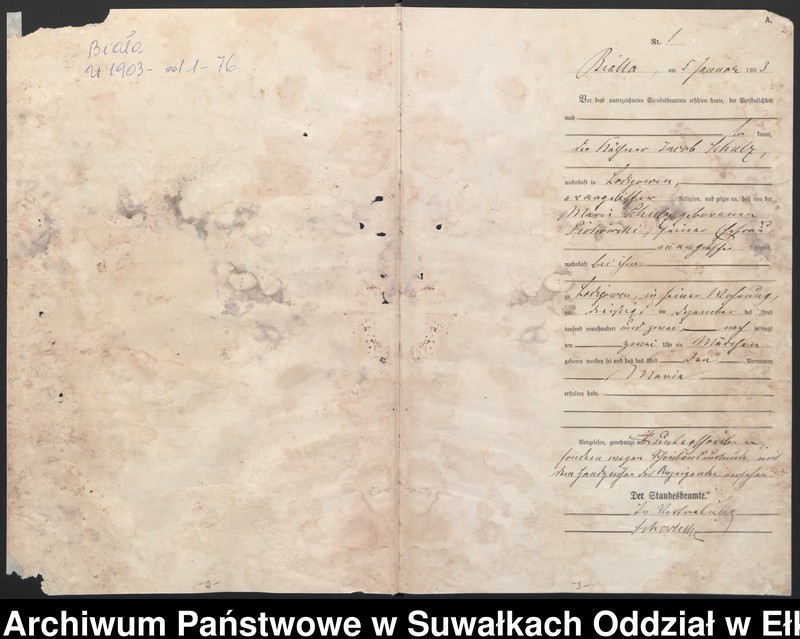 Biała
U 1903 - od 1 - 76
A.
Nr. 1
Bialla, am 5 Januar 1903
Vor dem unterzeichneten Standesbeamten erschien heute, der Persönlichkeit
nach
kannt,
der Käthner Jacob Schulz,
wohnhaft in
evangelischer Religion, und zeigte an, daß von der
Maria Schulz geborenen
Piotrowski, seiner Ehefrau
evangelischer Religion,
wohnhaft bei ihm
in seiner Wohnung,
am dreißigsten Dezember des Jahres
tausend neunhundert und zwei nach mittags
um zwei Uhr ein Mädchen
geboren worden sei und daß das Kind den Vornamen
Maria
erhalten habe.
Vorgelesen, genehmigt und nicht unterschrieben,
sondern wegen Schreibensunkunde mit
dem Handzeichen des Anzeigenden versehen
Der Standesbeamte.
In Vertretung
- 2 -
- 3 -
Archiwum Państwowe w Suwałkach Oddział w Eł